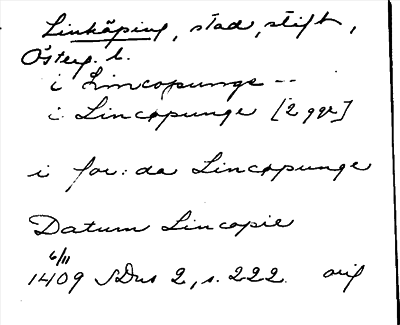 Linköping, stad, stift,
Österg. l.
i Lincopunge --
i Lincopunge [2 ggr]
i for:da Lincopunge
Datum Lincopie
6/11
1409 SDns 2, s. 222. orig